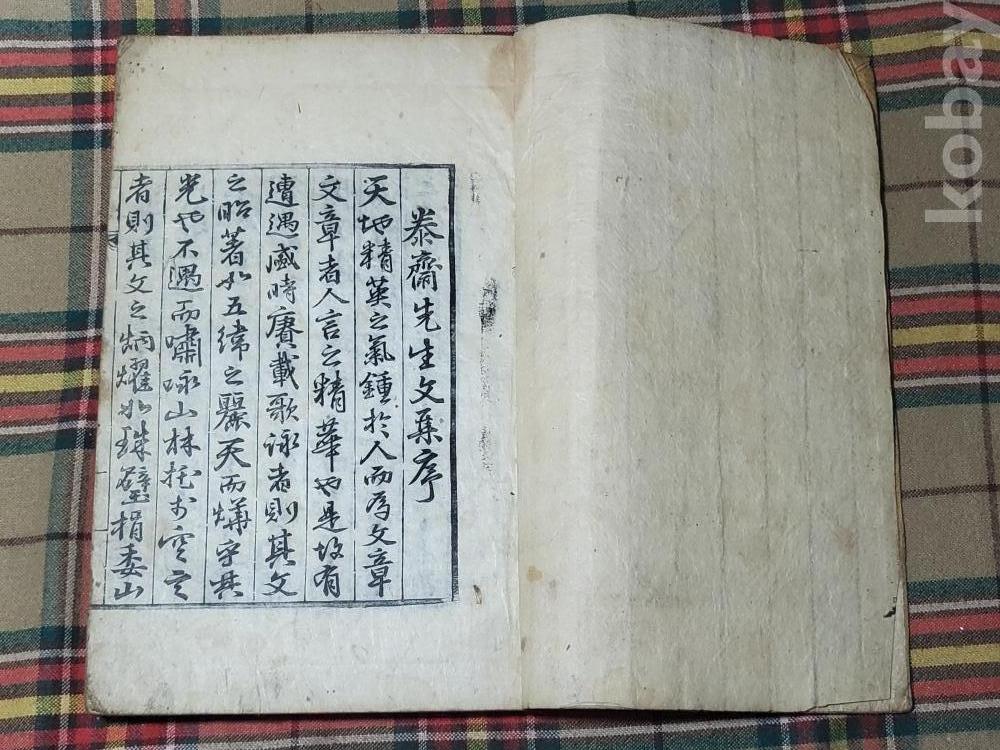 泰齋先生文集序
天地精英之氣鍾於人而爲文章
文章者人言之精華也是故有
遭遇盛時賡載歌詠者則其文
之昭著如五緯之麗天而燁乎其
光也不遇而嘯咏山林托於空言
者則其文之炳燿如珠璧捐委山
kobay